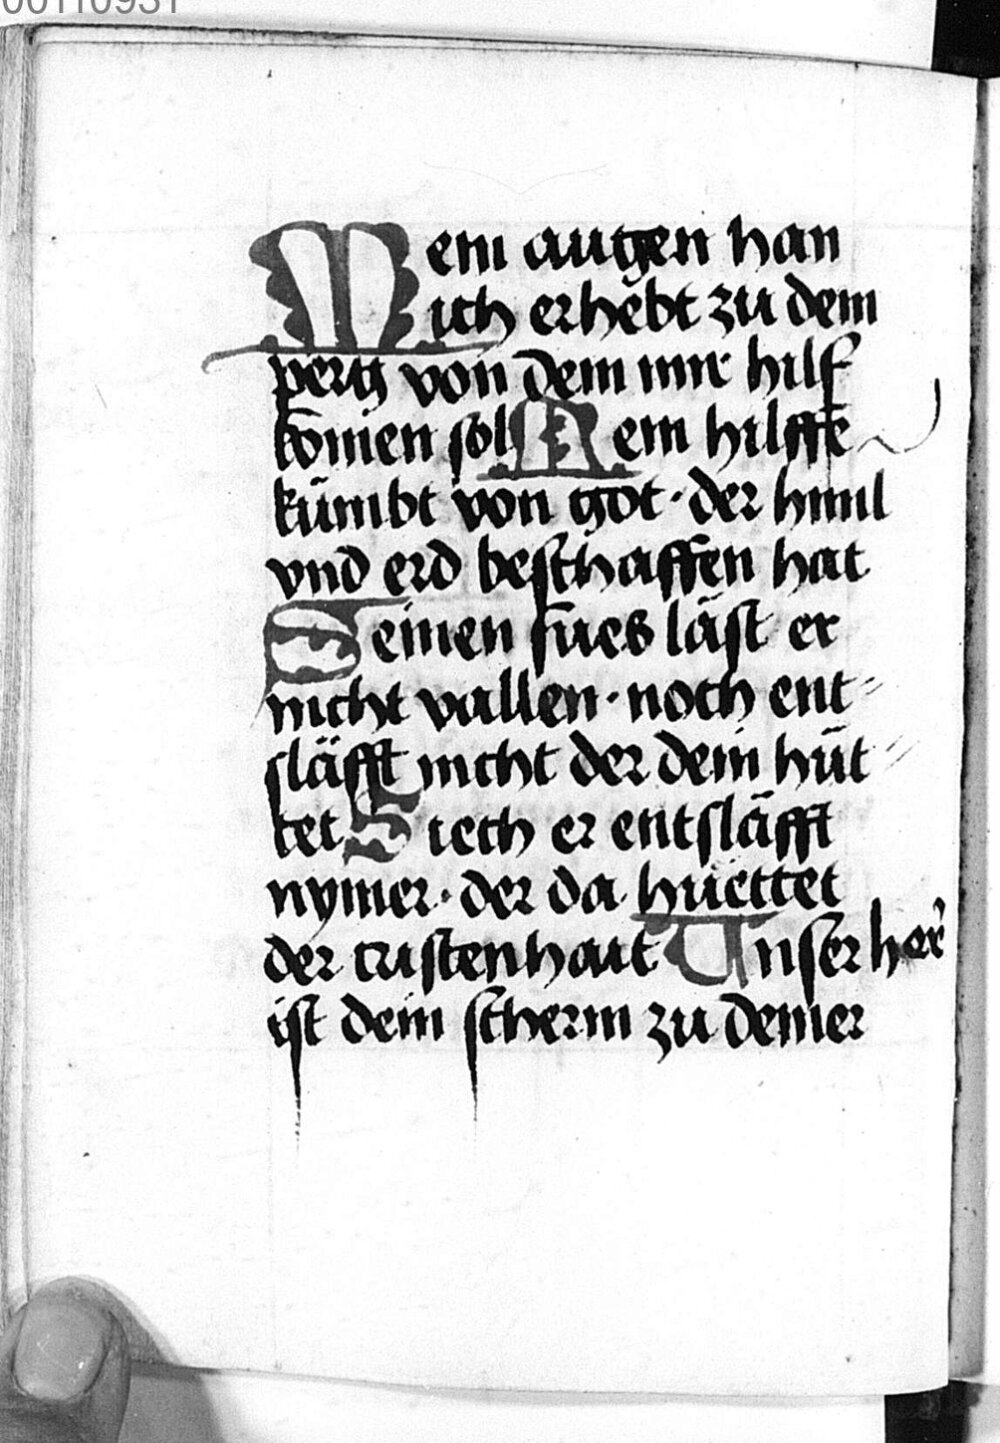 00110931
Mein augen han
ich erhebt zu dem
perg von dem mir hilf
komen sol Mein hilffe
kümbt von got · der himl
vnd erd beschaffen hat
Deinen fues läst er
nicht vallen · noch ent⸗
släfft nicht der dein hüt⸗
tet Siech er entsläfft
nymer · der da huettet
der cristenhait Vnser her
ist dein scherm zu deiner